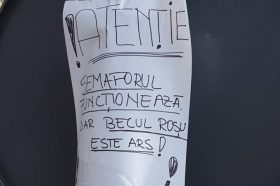 !ATENȚIE
SEMAFORUL
FUNCȚIONEAZĂ,
DAR BECUL ROȘU
ESTE ARS!